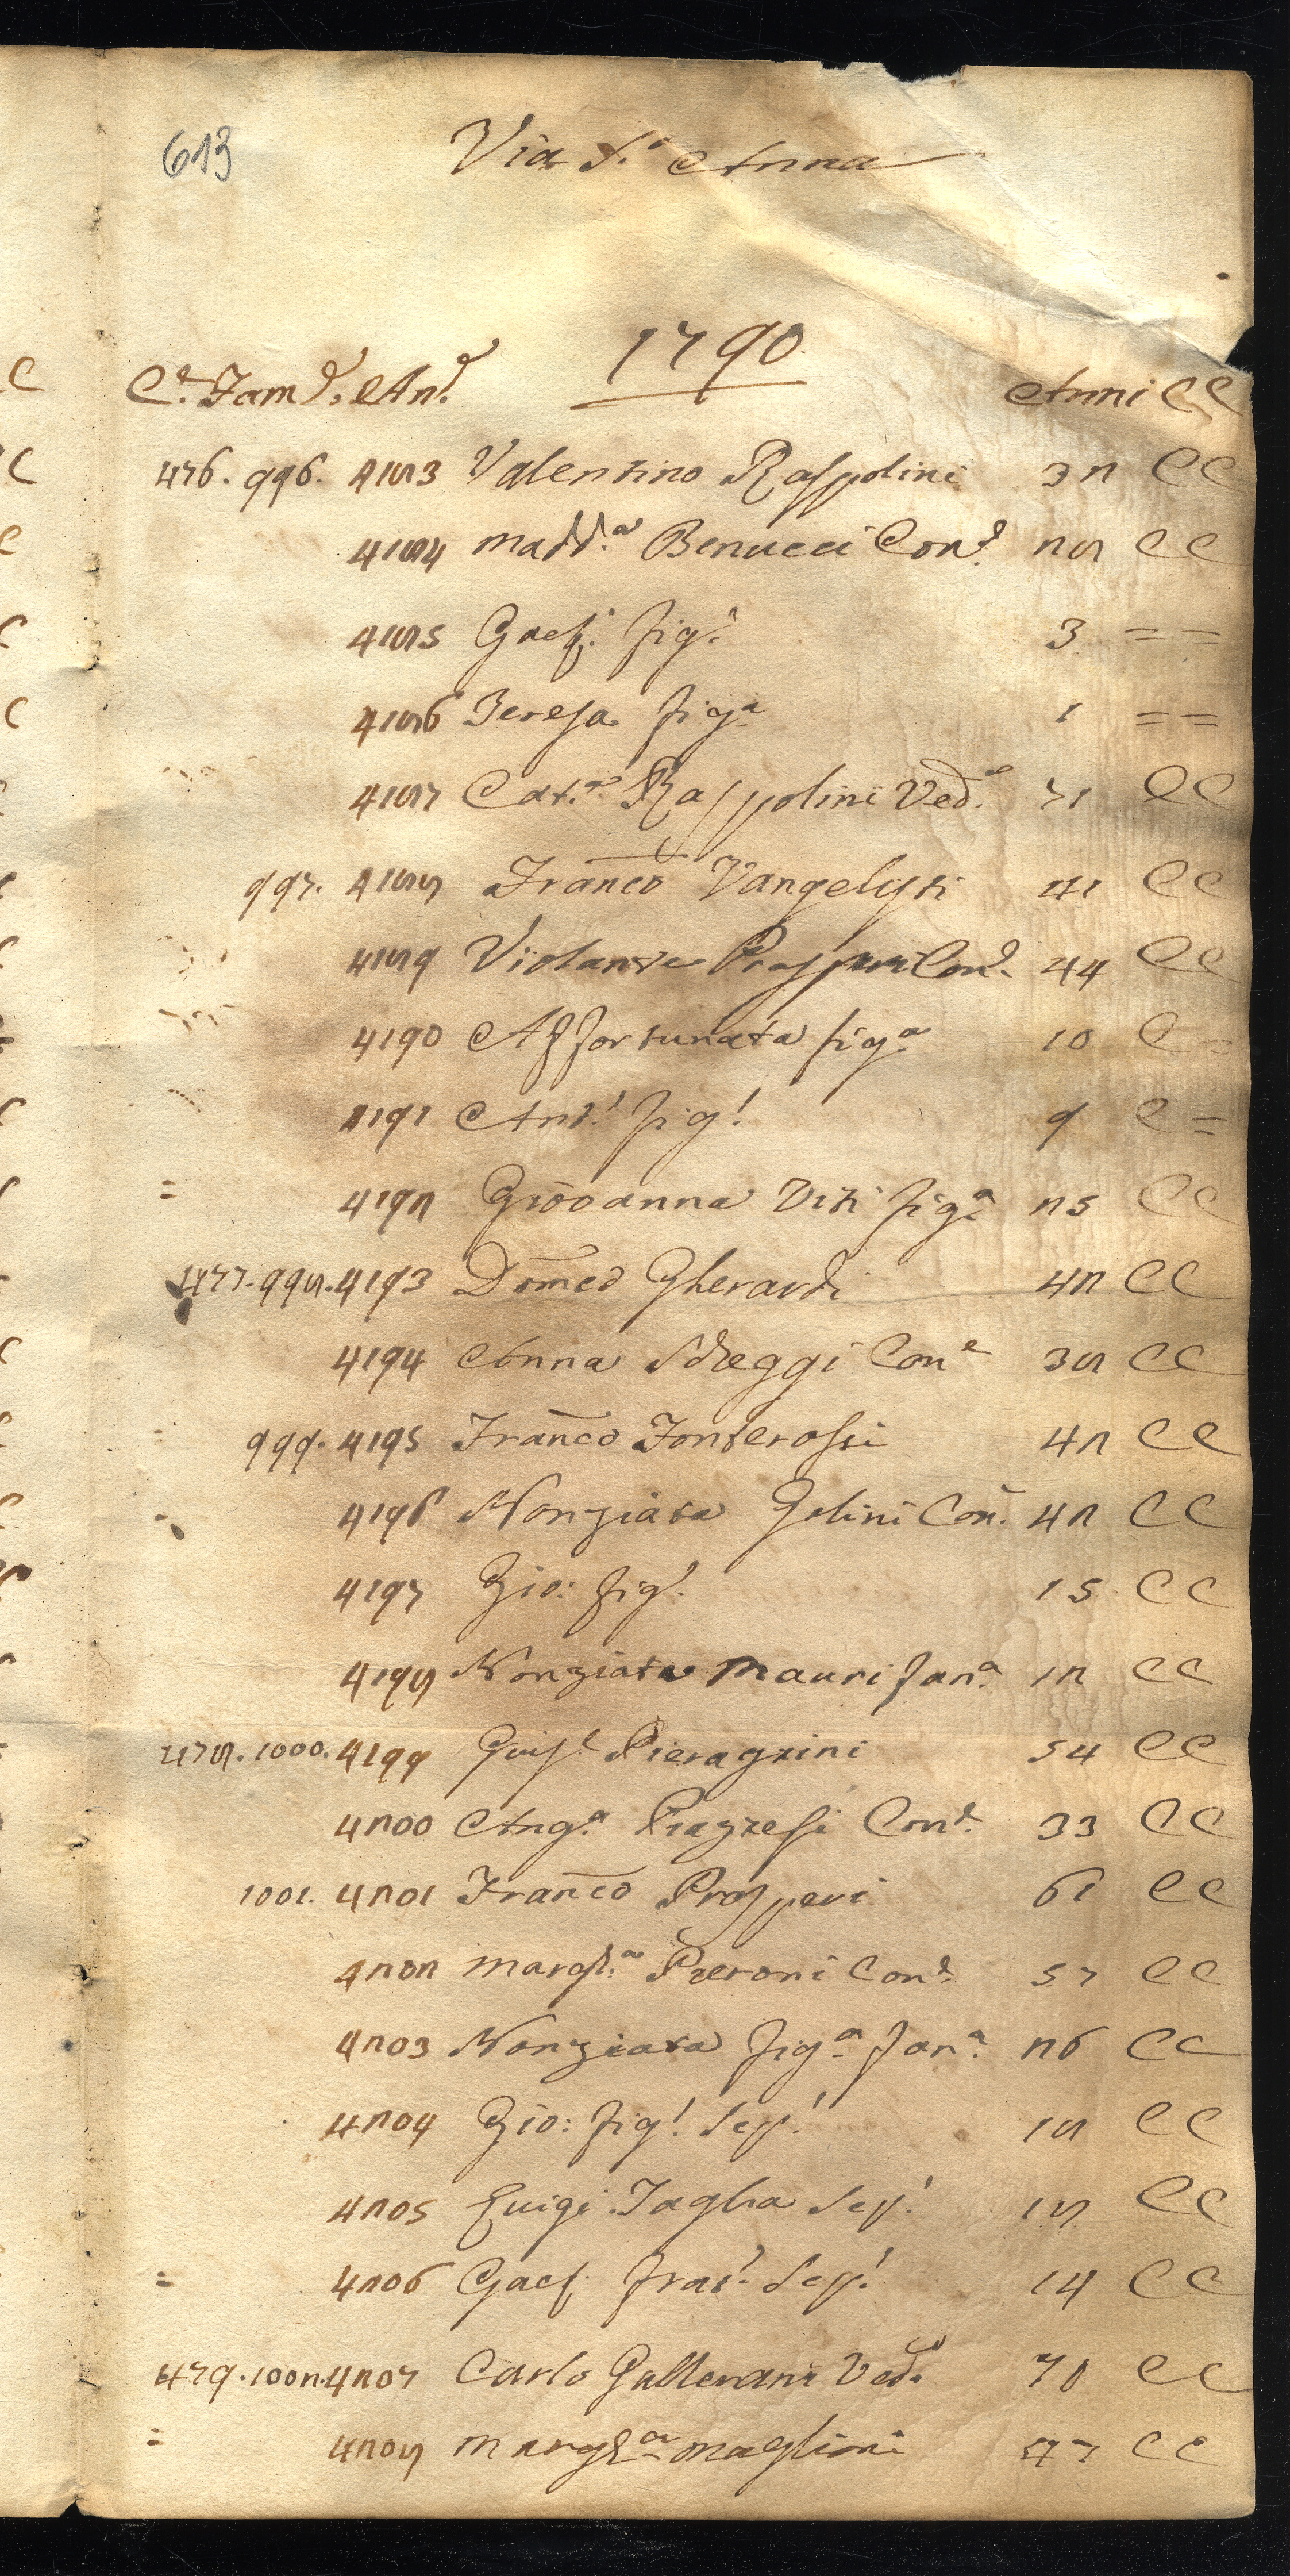 613
Via S.a Anna
1790
C.e Fam.e An.e Anni CC
476. 996. 4183 Valentino Raspolini 32 CC
4184 Madd.a Benucci Con.e 28 CC
4185 Gaet.o fig.o 3 = =
4186 Teresa fig.a 1 = =
4187 Cat.a Raspolini Ved.a 71 CC
997. 4188 Franco Vangelisti 41 CC
4189 Violante Prosperi Con.e 44 CC
4190 Affortunata fig.a 10 C =
4191 Ant.o fig.o 9 C =
= 4192 Giovanna Viti fig.a 25 CC
477. 998. 4193 Domco Gherardi 42 CC
4194 Anna Scheggi Con.e 38 CC
999. 4195 Franco Fonterossi 42 CC
4196 Nonziata Golini Con. 42 CC
4197 Gio: fig.o 15 CC
4198 Nonziata Mauri fan.a 12 CC
478. 1000. 4199 Giuse Pieragzini 54 CC
4200 Ang.a Pragzesi Con.e 33 CC
1001. 4201 Franco Prosperi 61 CC
4202 Margh.a Pieroni Con.e 57 CC
4203 Nonziata fig.a fan.a 26 CC
4204 Gio: fig.o Sep.o 18 CC
4205 Luigi Taglia Sep.o 18 CC
= 4206 Gaet. frat.o Sep.o 14 CC
479. 1002 4207 Carlo Gallerani Ved.o 70 CC
= 4208 Margh.a Maglioni CC